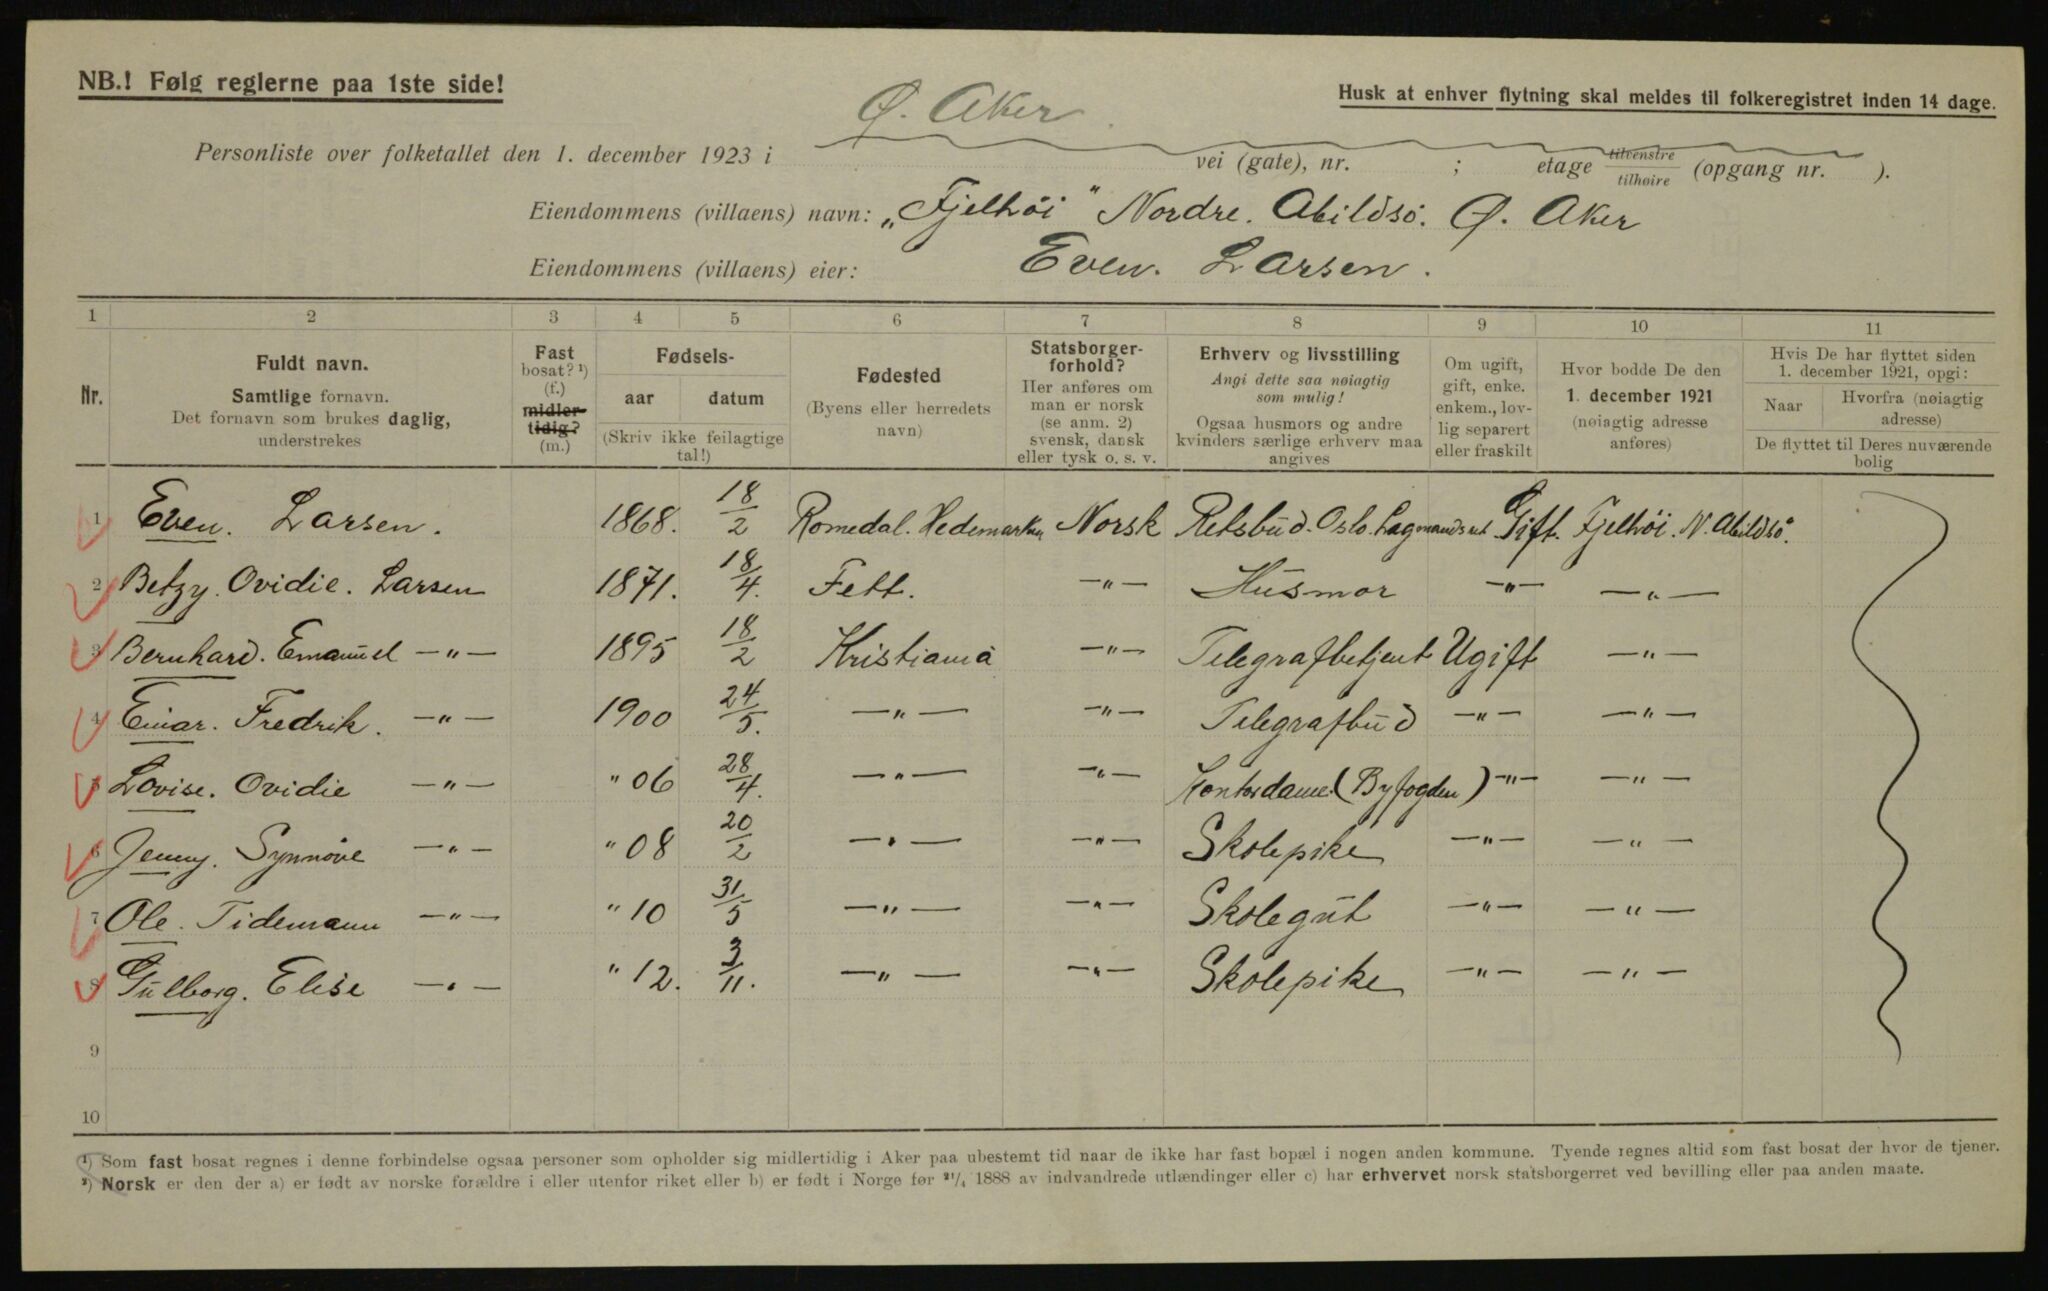 NB.! Følg reglerne paa 1ste side!
Husk at enhver flytning skal meldes til folkeregistret inden 14 dage.
Ø. Aker
Personliste over folketallet den 1. december 1923 i vei (gate), nr. ; etage tilvenstre/tilhøire (opgang nr. ).
Eiendommens (villaens) navn: „Fjelhöi" Nordre. Abildsö. Ø. Aker
Eiendommens (villaens) eier: Even. Larsen.
1 2 3 4 5 6 7 8 9 10 11
Nr. Fuldt navn. Samtlige fornavn. Det fornavn som brukes daglig, understrekes
Fast bosat? ¹) (f.) midlertidig? (m.)
Fødsels- aar datum (Skriv ikke feilagtige tal!)
Fødested (Byens eller herredets navn)
Statsborgerforhold? Her anføres om man er norsk (se anm. 2) svensk, dansk eller tysk o. s. v.
Erhverv og livsstilling Angi dette saa nøiagtig som mulig! Ogsaa husmors og andre kvinders særlige erhverv maa angives
Om ugift, gift, enke. enkem., lovlig separert eller fraskilt
Hvor bodde De den 1. december 1921 (nøiagtig adresse anføres)
Hvis De har flyttet siden 1. december 1921, opgi: Naar Hvorfra (nøiagtig adresse) De flyttet til Deres nuværende bolig
1 Even. Larsen. 1868. 18/2 Romedal. Hedemarken Norsk Retsbud. Oslo. Lagmandsret Gift. Fjelhöi. N. Abildsö.
2 Betzy. Ovidie. Larsen 1871. 18/4. Fett. —"— Husmor —"— —"—
3 Bernhard. Emanuel —"— 1895 18/2 Kristiania —"— Telegrafbetjent Ugift —"—
4 Einar. Fredrik. —"— 1900 24/5. —"— —"— Telegrafbud —"— —"—
5 Lovise. Ovidie —"— "06 28/4. —"— —"— Kontordame. (Byfogden) —"— —"—
6 Jenny. Synnöve —"— "08 20/2 —"— —"— Skolepike —"— —"—
7 Ole. Tidemann —"— "10 31/5 —"— —"— Skolegut —"— —"—
8 Gulborg. Elise —"— "12. 3/11. —"— —"— Skolepike —"— —"—
9
10
¹) Som fast bosat regnes i denne forbindelse ogsaa personer som opholder sig midlertidig i Aker paa ubestemt tid naar de ikke har fast bopæl i nogen anden kommune. Tyende regnes altid som fast bosat der hvor de tjener.
²) Norsk er den der a) er født av norske forældre i eller utenfor riket eller b) er født i Norge før ²¹/₄ 1888 av indvandrede utlændinger eller c) har erhvervet norsk statsborgerret ved bevilling eller paa anden maate.